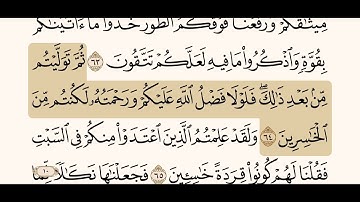 مِيثَٰقَكُمْ وَرَفَعْنَا فَوْقَكُمُ ٱلطُّورَ خُذُوا۟ مَآ ءَاتَيْنَٰكُم
بِقُوَّةٍ وَٱذْكُرُوا۟ مَا فِيهِ لَعَلَّكُمْ تَتَّقُونَ ٦٣ ثُمَّ تَوَلَّيْتُم
مِّنۢ بَعْدِ ذَٰلِكَ ۖ فَلَوْلَا فَضْلُ ٱللَّهِ عَلَيْكُمْ وَرَحْمَتُهُۥ لَكُنتُم مِّنَ
ٱلْخَٰسِرِينَ ٦٤ وَلَقَدْ عَلِمْتُمُ ٱلَّذِينَ ٱعْتَدَوْا۟ مِنكُمْ فِى ٱلسَّبْتِ
فَقُلْنَا لَهُمْ كُونُوا۟ قِرَدَةً خَٰسِـِٔينَ ٦٥ فَجَعَلْنَٰهَا نَكَٰلًا لِّمَا